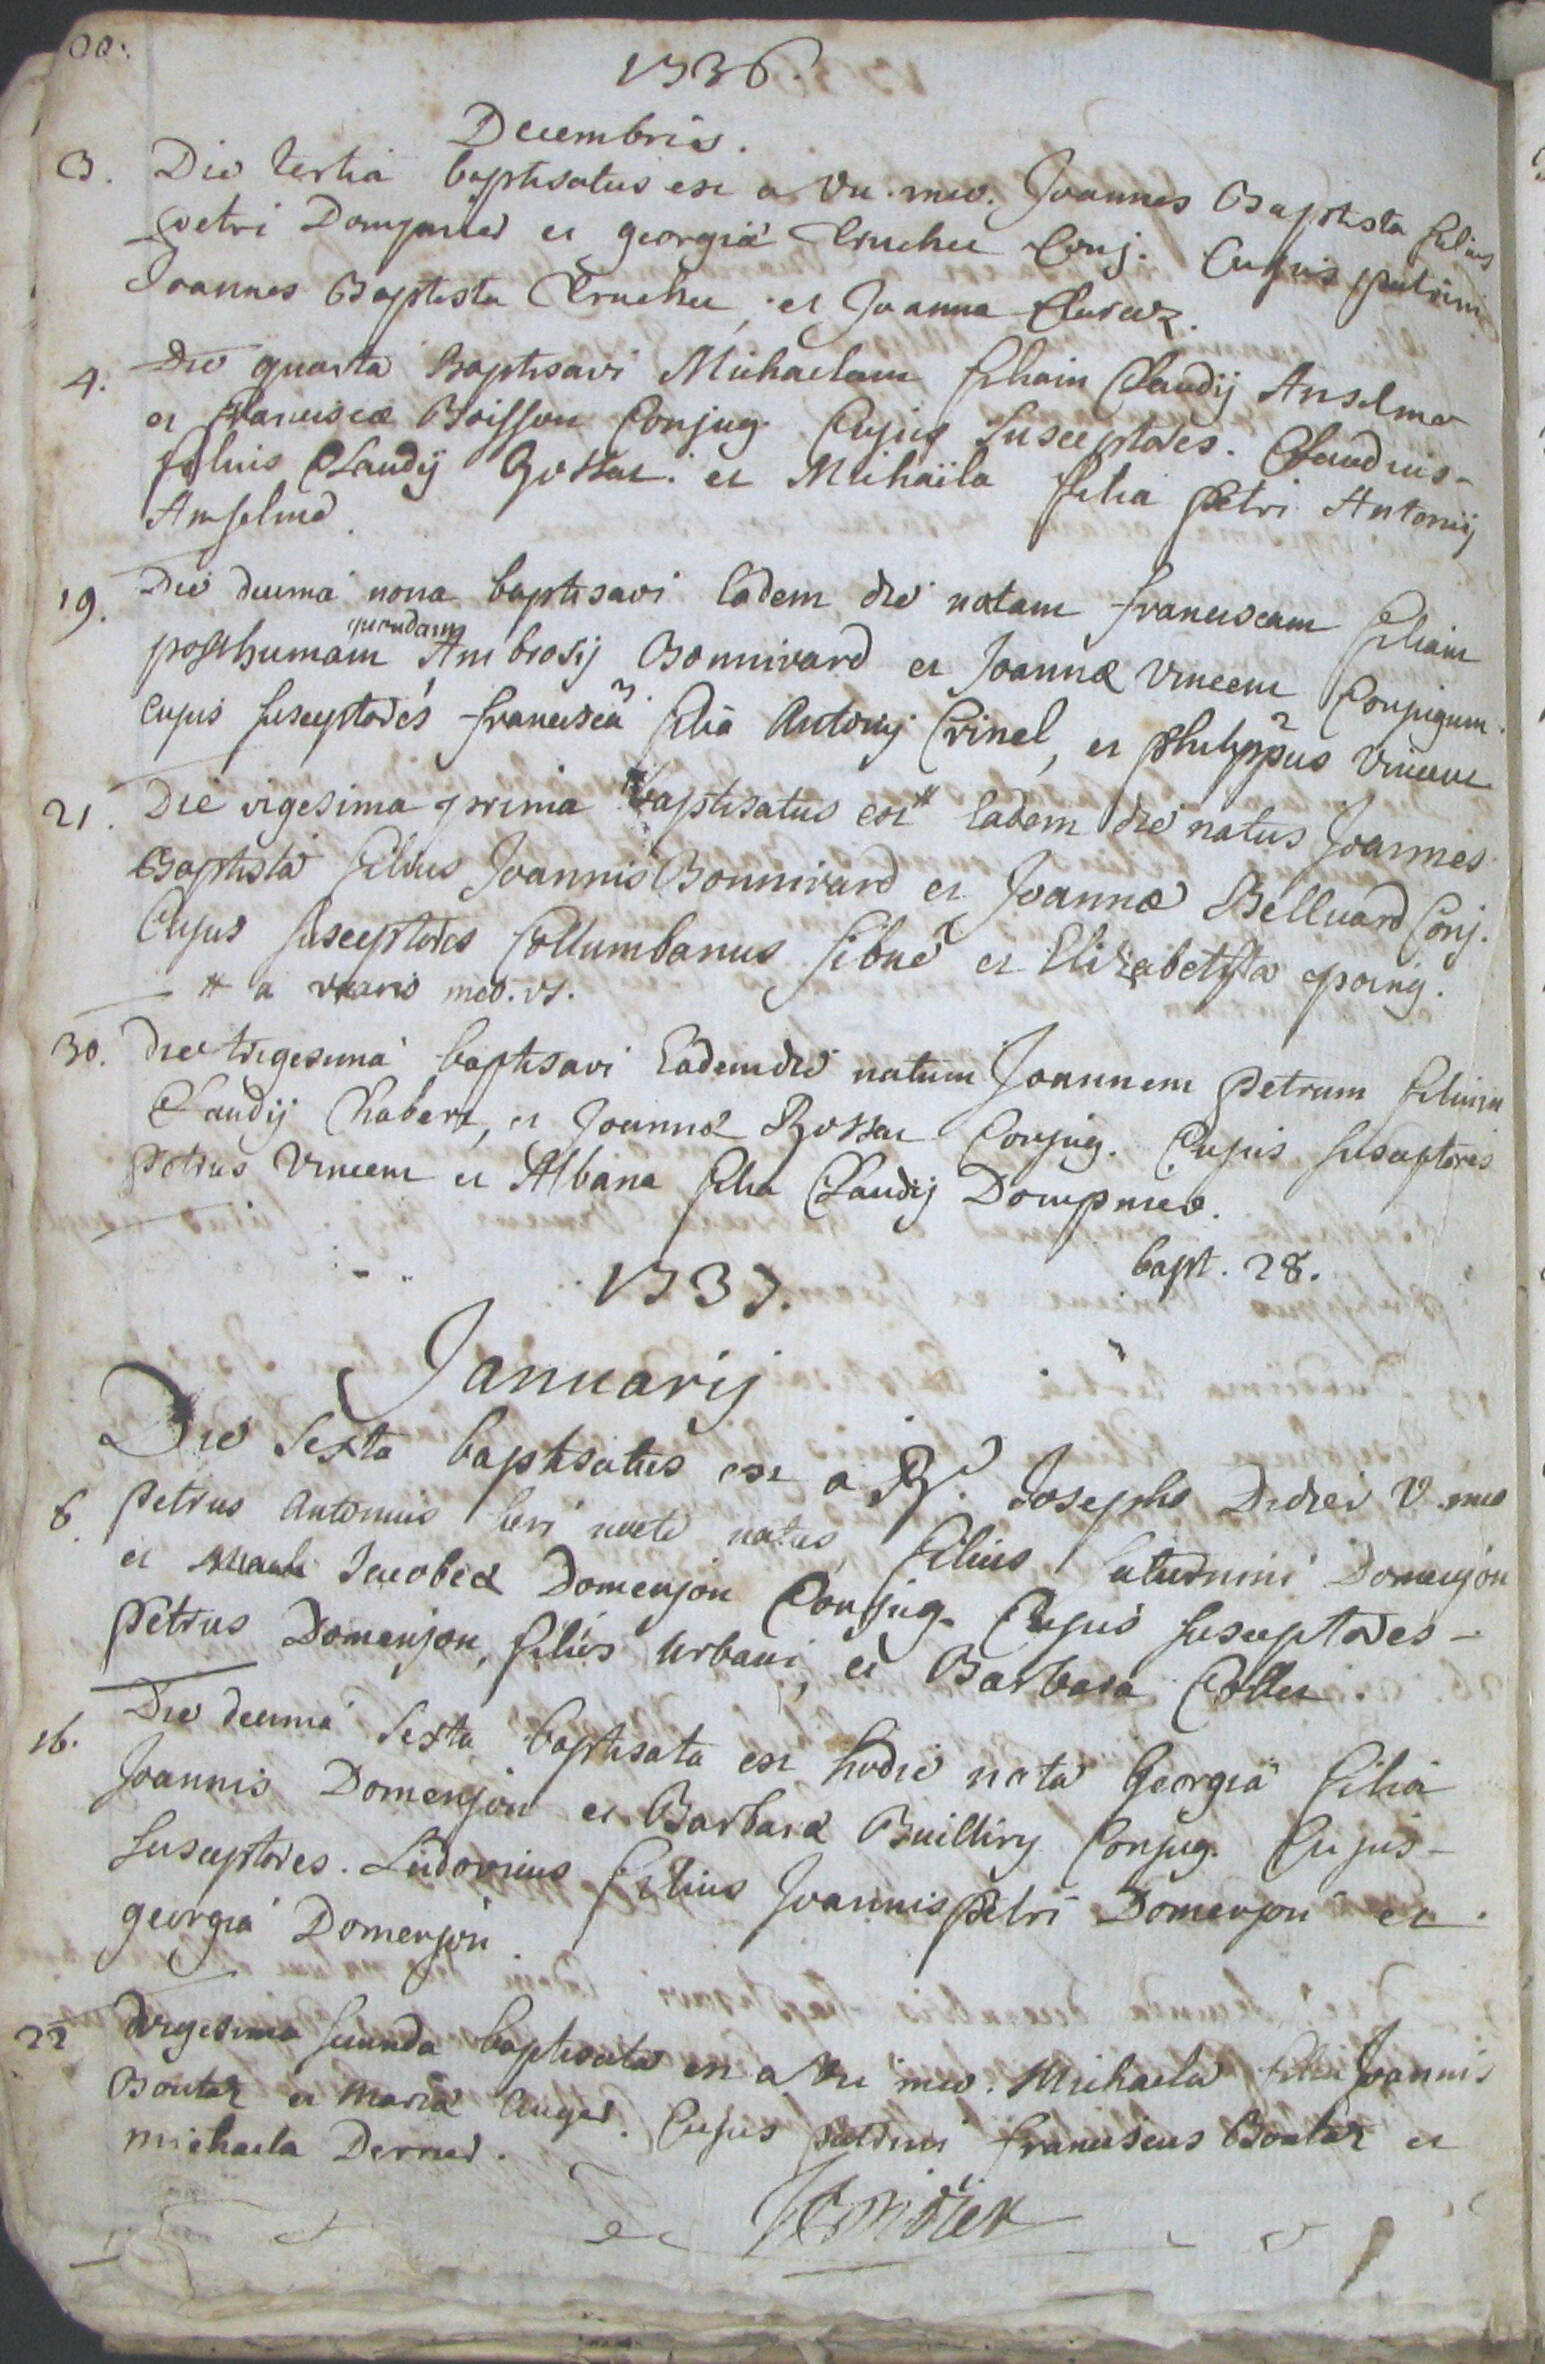 1736.
Decembris.
3. Die tertia baptisatus est a Vic. meo. Joannes Baptista filius
petri Dompnier et georgiæ Truchet Conj. Cujus patrini
Joannes Baptista Truchet, et Joanna Claraz.
4. Die quarta Baptisavi Michaelam filiam Claudij Anselme
et franciscæ Boisson Conjug. Cujus Susceptores. Claudius
filius Claudij Gottar. et Michaela filia petri Antonij
Anselme.
19. Die decima nona baptisavi Eadem die natam franciscam filiam
posthumam quondam Ambrosij Bonnivard et Joannæ Vincent Conjugum.
Cujus susceptores francisca filia Antonij Crinel, et philippus Vincent
21. Die vigesima prima baptisatus est # Eadem die natus Joannes
Baptista filius Joannis Bonnivard et Joannæ Belluard Conj.
Cujus susceptores Collumbanus Sibué et Elizabetha poing.
# a vicario meo. vt.
30. die trigesima baptisavi Eadem die natum Joannem petrum filium
Claudij Chabert, et Joannæ Rossat Conjug. Cujus susceptores
petrus Vincent et Albana filia Claudij Dompnier.
bapt. 28.
1737.
Januarij
Die Sexta baptisatus est a Rd. Josepho Didier V. meo
6. petrus antonius heri nocte natus, filius saturnini Domenjon
et Jacobeæ Domenjon Conjug. Cujus susceptores
petrus Domenjon, filius urbani, et Barbara Collet.
16. Die decima Sexta baptisata est hodie nata Georgia filia
Joannis Domenjon et Barbaræ Buillery Conjug. Cujus
susceptores. Ludovicus filius Joannis petri Domenjon et
georgia Domenjon.
22 vigesima secunda baptisata est a Vic meo. Michaela filia Joannis
Boutaz et Mariæ Auger. Cujus patrini franciscus Boutaz et
michaela Derrier.